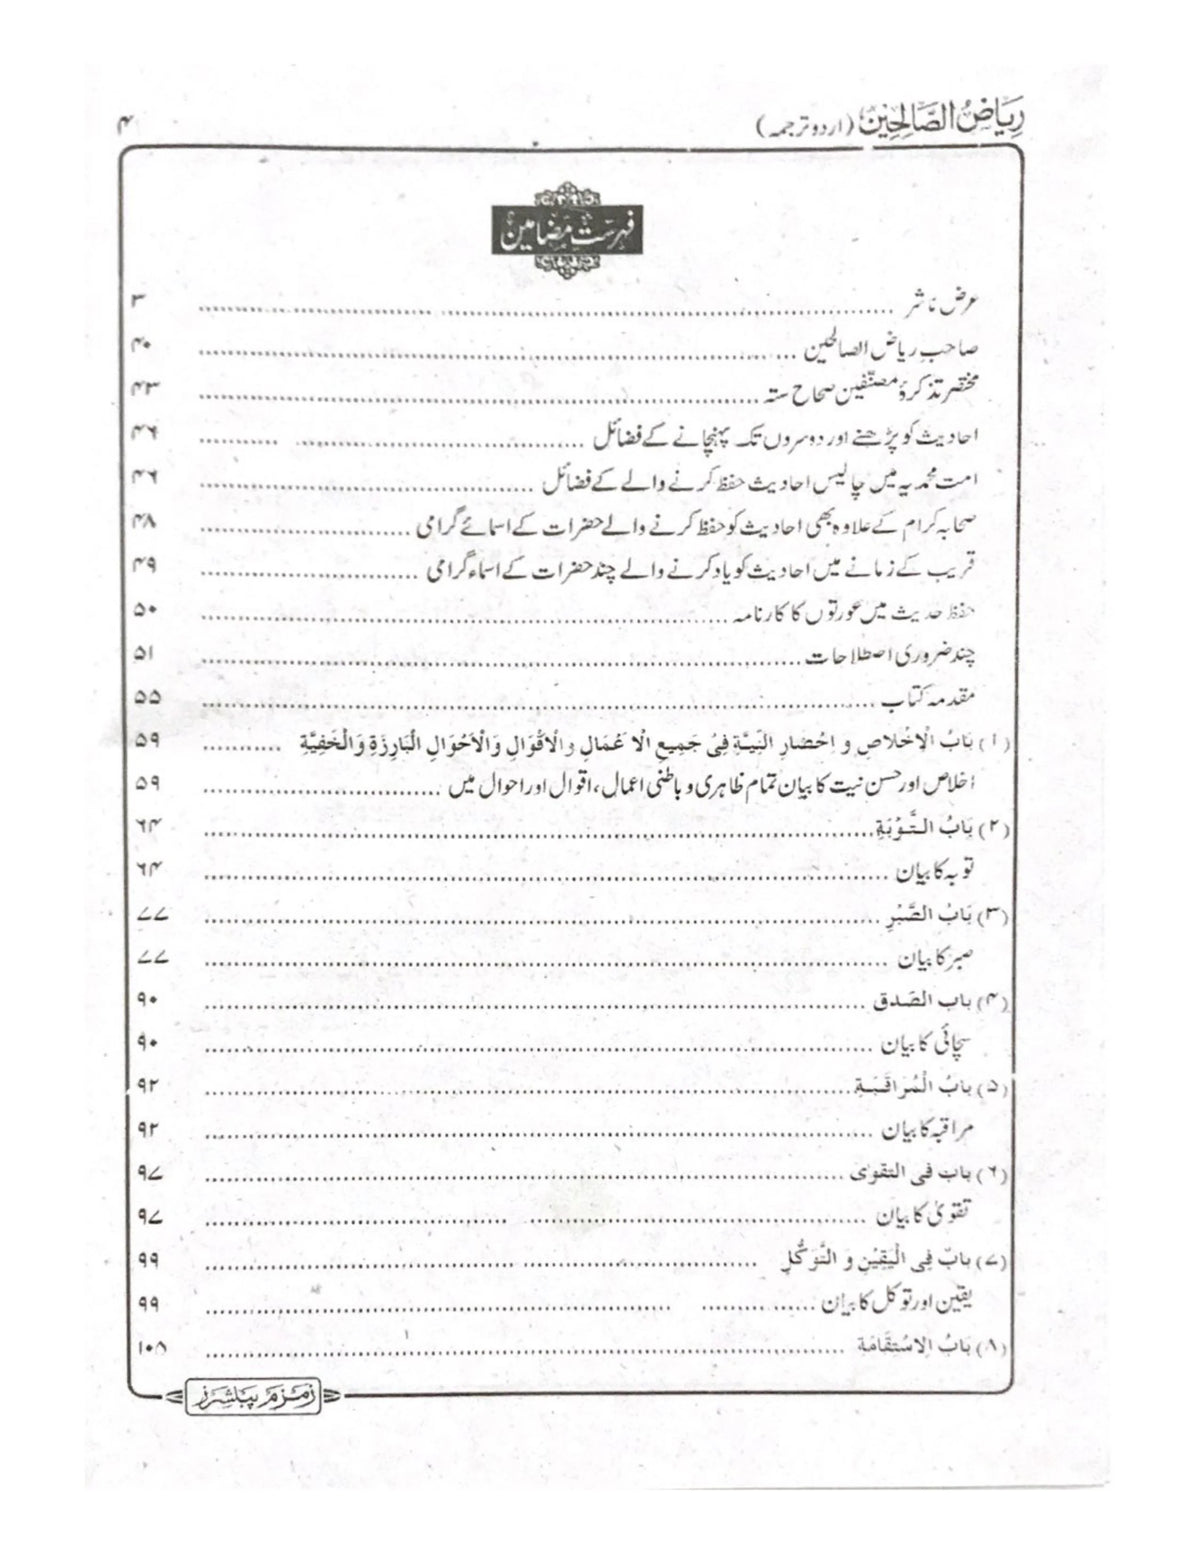 ریاض الصّالحین (اردو ترجمہ) ۴
فہرست مضامین
عرض ناشر ۳
صاحب ریاض الصالحین ۴۰
مختصر تذکرۂ مصنّفین صحاح ستہ ۴۳
احادیث کو پڑھنے اور دوسروں تک پہنچانے کے فضائل ۴۶
امت محمدیہ میں چالیس احادیث حفظ کرنے والے کے فضائل ۴۶
صحابہ کرام کے علاوہ بھی احادیث کو حفظ کرنے والے حضرات کے اسمائے گرامی ۴۸
قریب کے زمانے میں احادیث کو یاد کرنے والے چند حضرات کے اسماء گرامی ۴۹
حفظ حدیث میں عورتوں کا کارنامہ ۵۰
چند ضروری اصطلاحات ۵۱
مقدمہ کتاب ۵۵
(۱) بَابُ الْاِخْلَاصِ وَ اِحْضَارِ النِّیَّةِ فِیْ جَمِیعِ الْاَعْمَالِ وَالْاَقْوَالِ وَالْاَحْوَالِ الْبَارِزَةِ وَالْخَفِیَّةِ ۵۹
اخلاص اور حسن نیت کا بیان تمام ظاہری و باطنی اعمال، اقوال اور احوال میں ۵۹
(۲) بَابُ التَّوْبَةِ ۶۴
توبہ کا بیان ۶۴
(۳) بَابُ الصَّبْرِ ۷۷
صبر کا بیان ۷۷
(۴) باب الصَدق ۹۰
سچائی کا بیان ۹۰
(۵) بابُ الْمُرَاقَبَةِ ۹۲
مراقبہ کا بیان ۹۲
(۶) باب فی التقوی ۹۷
تقویٰ کا بیان ۹۷
(۷) بابٌ فِی الْیَقِیْنِ وَ التَّوَکُّلِ ۹۹
یقین اور توکل کا بیان ۹۹
(۸) بَابُ الِاسْتِقَامَة ۱۰۵
زمزم پبلشرز